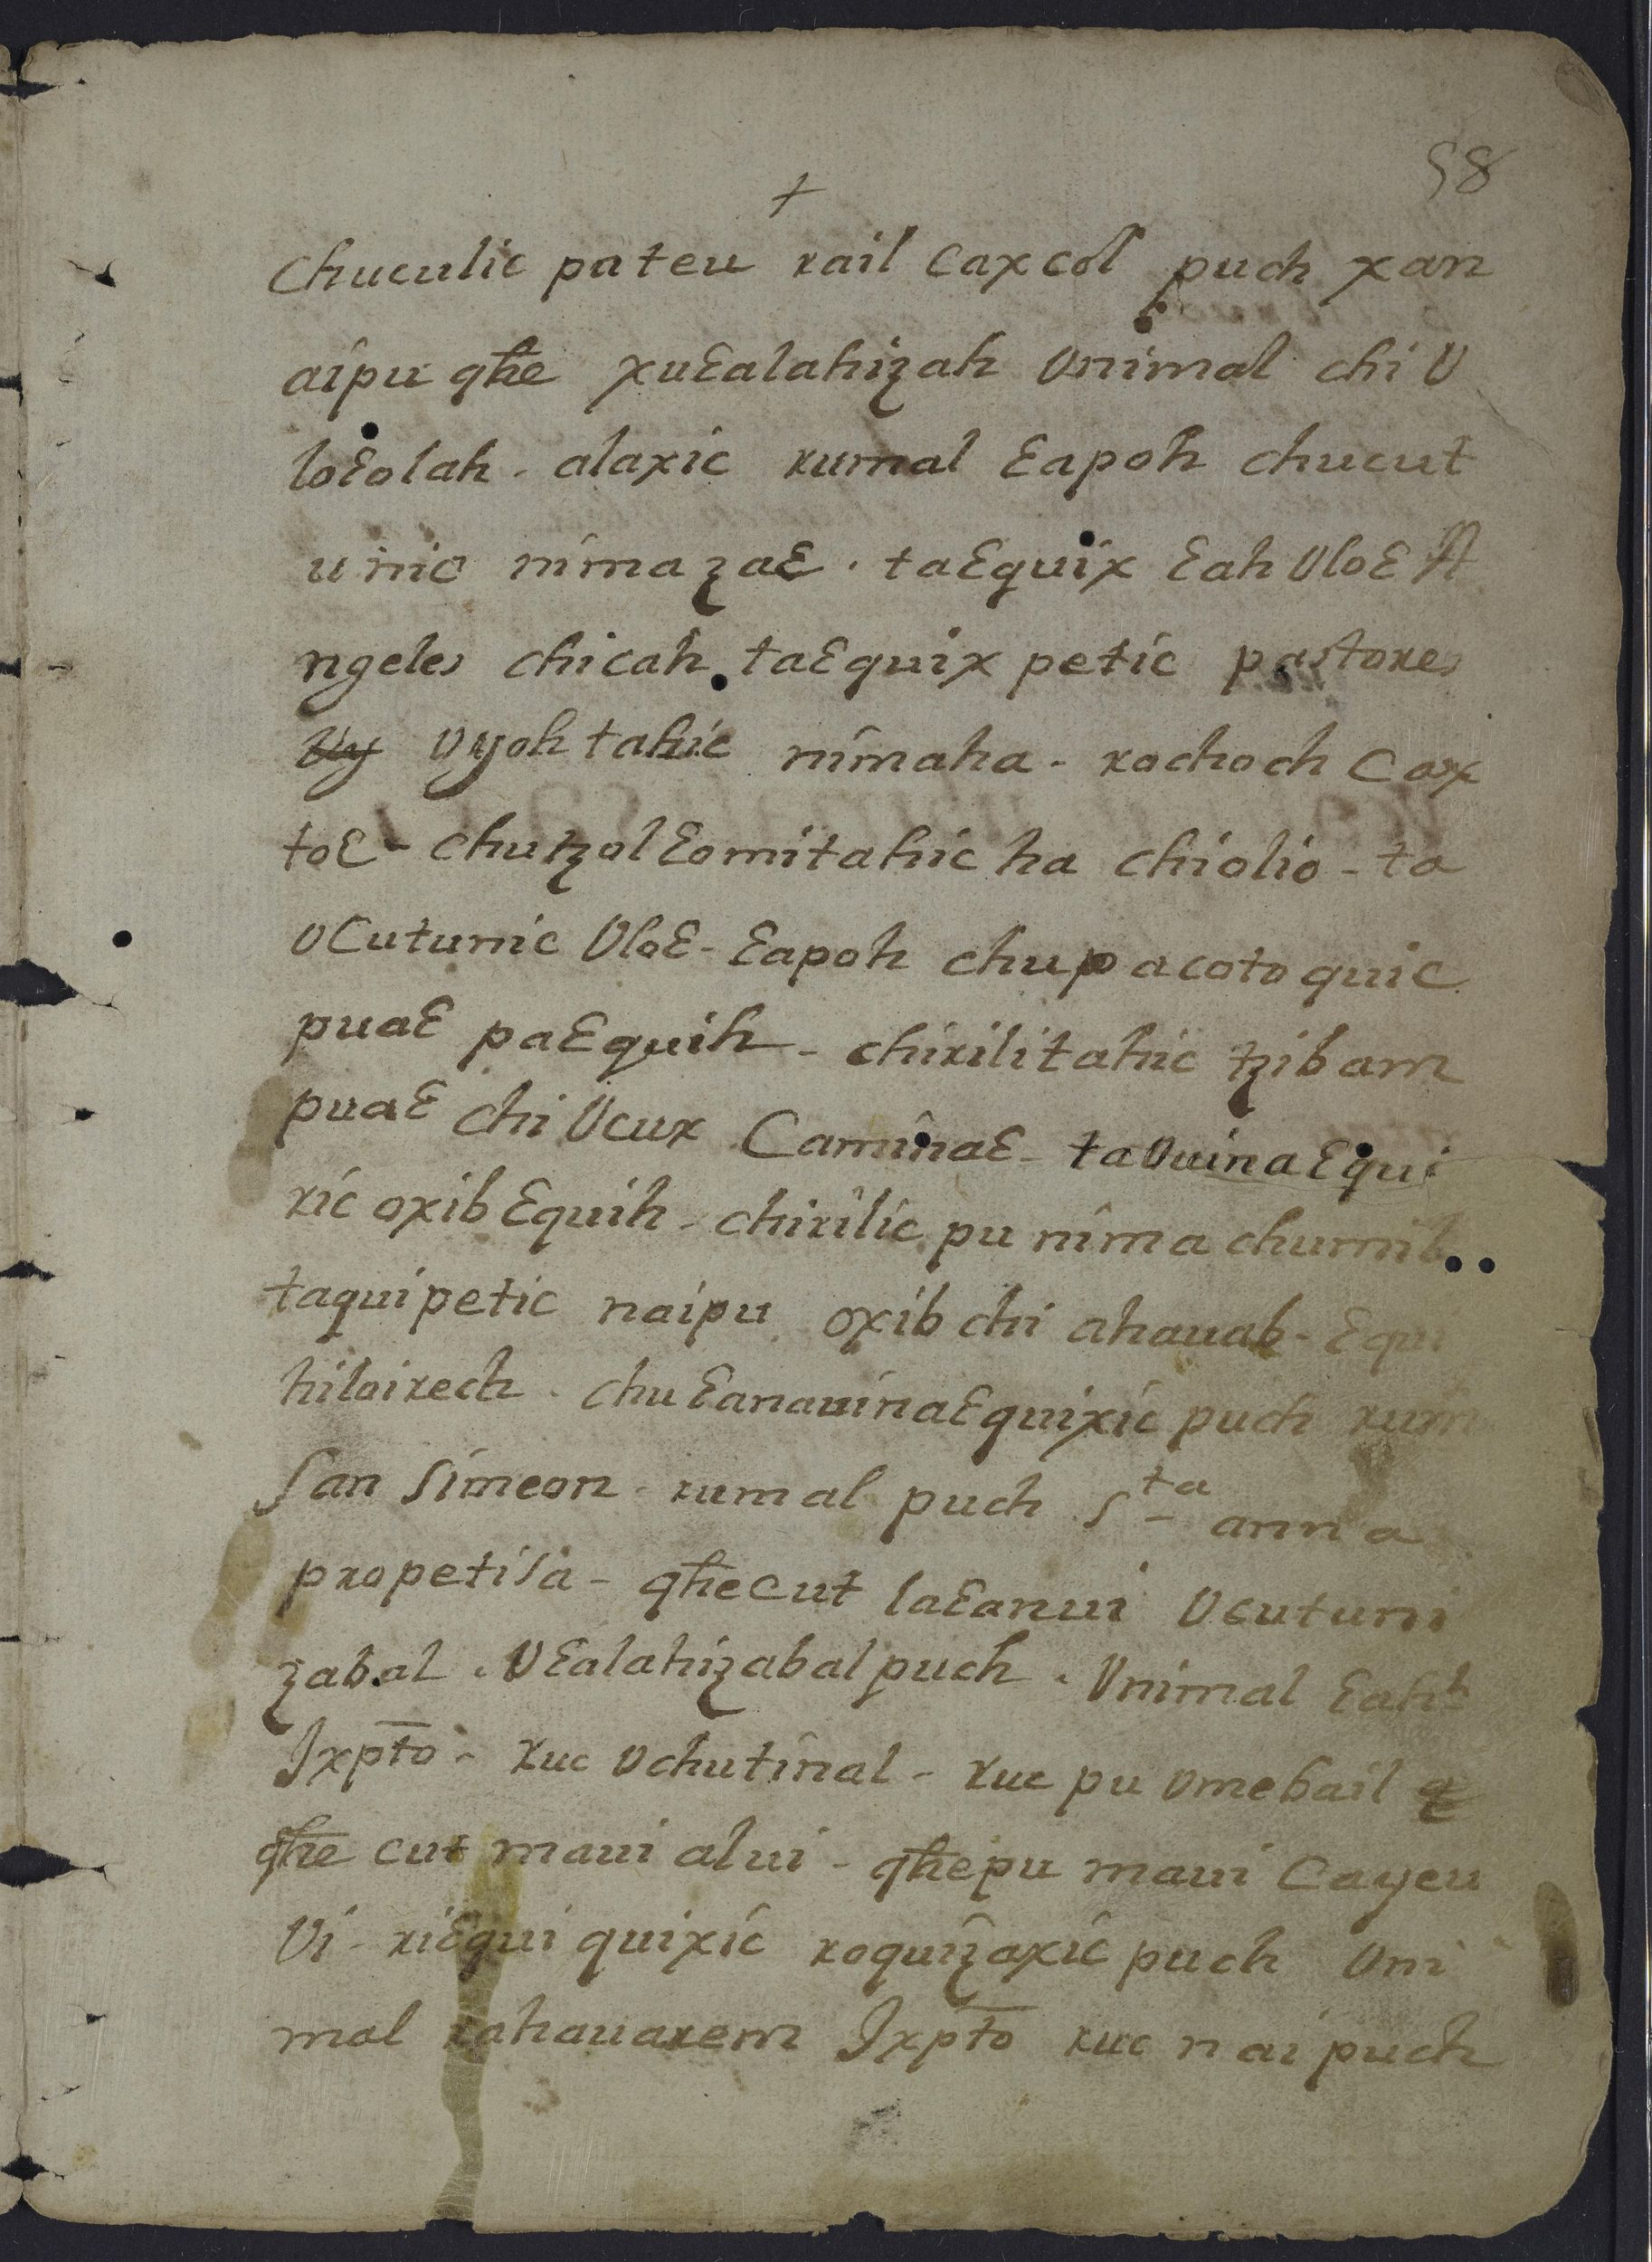 58
+
chuculic pateu rail caxcol puch xan
aipu qħe xuɛalahiꜩah Unimal chi U
loɛolah - alaxic rumal ɛapoh chucut
unic nima ꜩaɛ. taɛquix ɛah Uloɛ A
ngeles chicah. taɛquix petic pastores
Uy Uyoh tahic nimaha - rochoch Cax
toɛ - chutꜩolɛomitahic ha chiolio - ta
Ucutunic Uloɛ - ɛapoh chupacotoquic
puaɛ paɛquih - chirilitahic tꜩibam
puaɛ chiUcux CaminaɛtaUuinaɛqui
ric oxib ɛquih - chirilic pu nima chumil
taquipetic naipu oxib chi ahauab - ɛqui
hiloirech - chuɛanauinaɛquixic puch rum
San Simeon - rumal puch Sta anna
propetisa - qħecut laɛanui Ucutuni
ꜩabal. Uɛalahiꜩabal puch. Unimal ɛahb
Jxpto - ruc Uchutinal - ruc pu Umebail q
qħe cut maui alui - qħepu maui Cayeu
Ui - riɛqui quixic roquiꜩaxic puch Uni
mal rahauarem Jxpto ruc naipuch